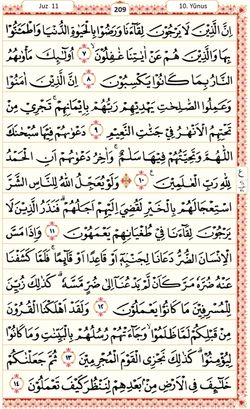 Juz 11
209
10. Yûnus
اِنَّ الَّذٖينَ لَا يَرْجُونَ لِقَٓاءَنَا وَرَضُوا بِالْحَيٰوةِ الدُّنْيَا وَاطْمَاَنُّوا
بِهَا وَالَّذٖينَ هُمْ عَنْ اٰيَاتِنَا غَافِلُونَۙ ﴿٧﴾ اُو۬لٰٓئِكَ مَأْوٰيهُمُ
النَّارُ بِمَا كَانُوا يَكْسِبُونَ ﴿٨﴾ اِنَّ الَّذٖينَ اٰمَنُوا
وَعَمِلُوا الصَّالِحَاتِ يَهْدٖيهِمْ رَبُّهُمْ بِاٖيمَانِهِمْۚ تَجْرٖي مِنْ
تَحْتِهِمُ الْاَنْهَارُ فٖي جَنَّاتِ النَّعٖيمِ ﴿٩﴾ دَعْوٰيهُمْ فٖيهَا سُبْحَانَكَ
اللّٰهُمَّ وَتَحِيَّتُهُمْ فٖيهَا سَلَامٌۚ وَاٰخِرُ دَعْوٰيهُمْ اَنِ الْحَمْدُ
لِلّٰهِ رَبِّ الْعَالَمٖينَ ﴿١٠﴾ وَلَوْ يُعَجِّلُ اللّٰهُ لِلنَّاسِ الشَّرَّ
اسْتِعْجَالَهُمْ بِالْخَيْرِ لَقُضِيَ اِلَيْهِمْ اَجَلُهُمْۜ فَنَذَرُ الَّذٖينَ لَا
يَرْجُونَ لِقَٓاءَنَا فٖي طُغْيَانِهِمْ يَعْمَهُونَ ﴿١١﴾ وَاِذَا مَسَّ
الْاِنْسَانَ الضُّرُّ دَعَانَا لِجَنْبِهٖٓ اَوْ قَاعِداً اَوْ قَٓائِماًۚ فَلَمَّا كَشَفْنَا
عَنْهُ ضُرَّهُ مَرَّ كَاَنْ لَمْ يَدْعُنَٓا اِلٰى ضُرٍّ مَسَّهُۜ كَذٰلِكَ زُيِّنَ
لِلْمُسْرِفٖينَ مَا كَانُوا يَعْمَلُونَ ﴿١٢﴾ وَلَقَدْ اَهْلَكْنَا الْقُرُونَ
مِنْ قَبْلِكُمْ لَمَّا ظَلَمُواۙ وَجَٓاءَتْهُمْ رُسُلُهُمْ بِالْبَيِّنَاتِ وَمَا كَانُوا
لِيُؤْمِنُواۜ كَذٰلِكَ نَجْزِي الْقَوْمَ الْمُجْرِمٖينَ ﴿١٣﴾ ثُمَّ جَعَلْنَاكُمْ
خَلَٓائِفَ فِي الْاَرْضِ مِنْ بَعْدِهِمْ لِنَنْظُرَ كَيْفَ تَعْمَلُونَ ﴿١٤﴾